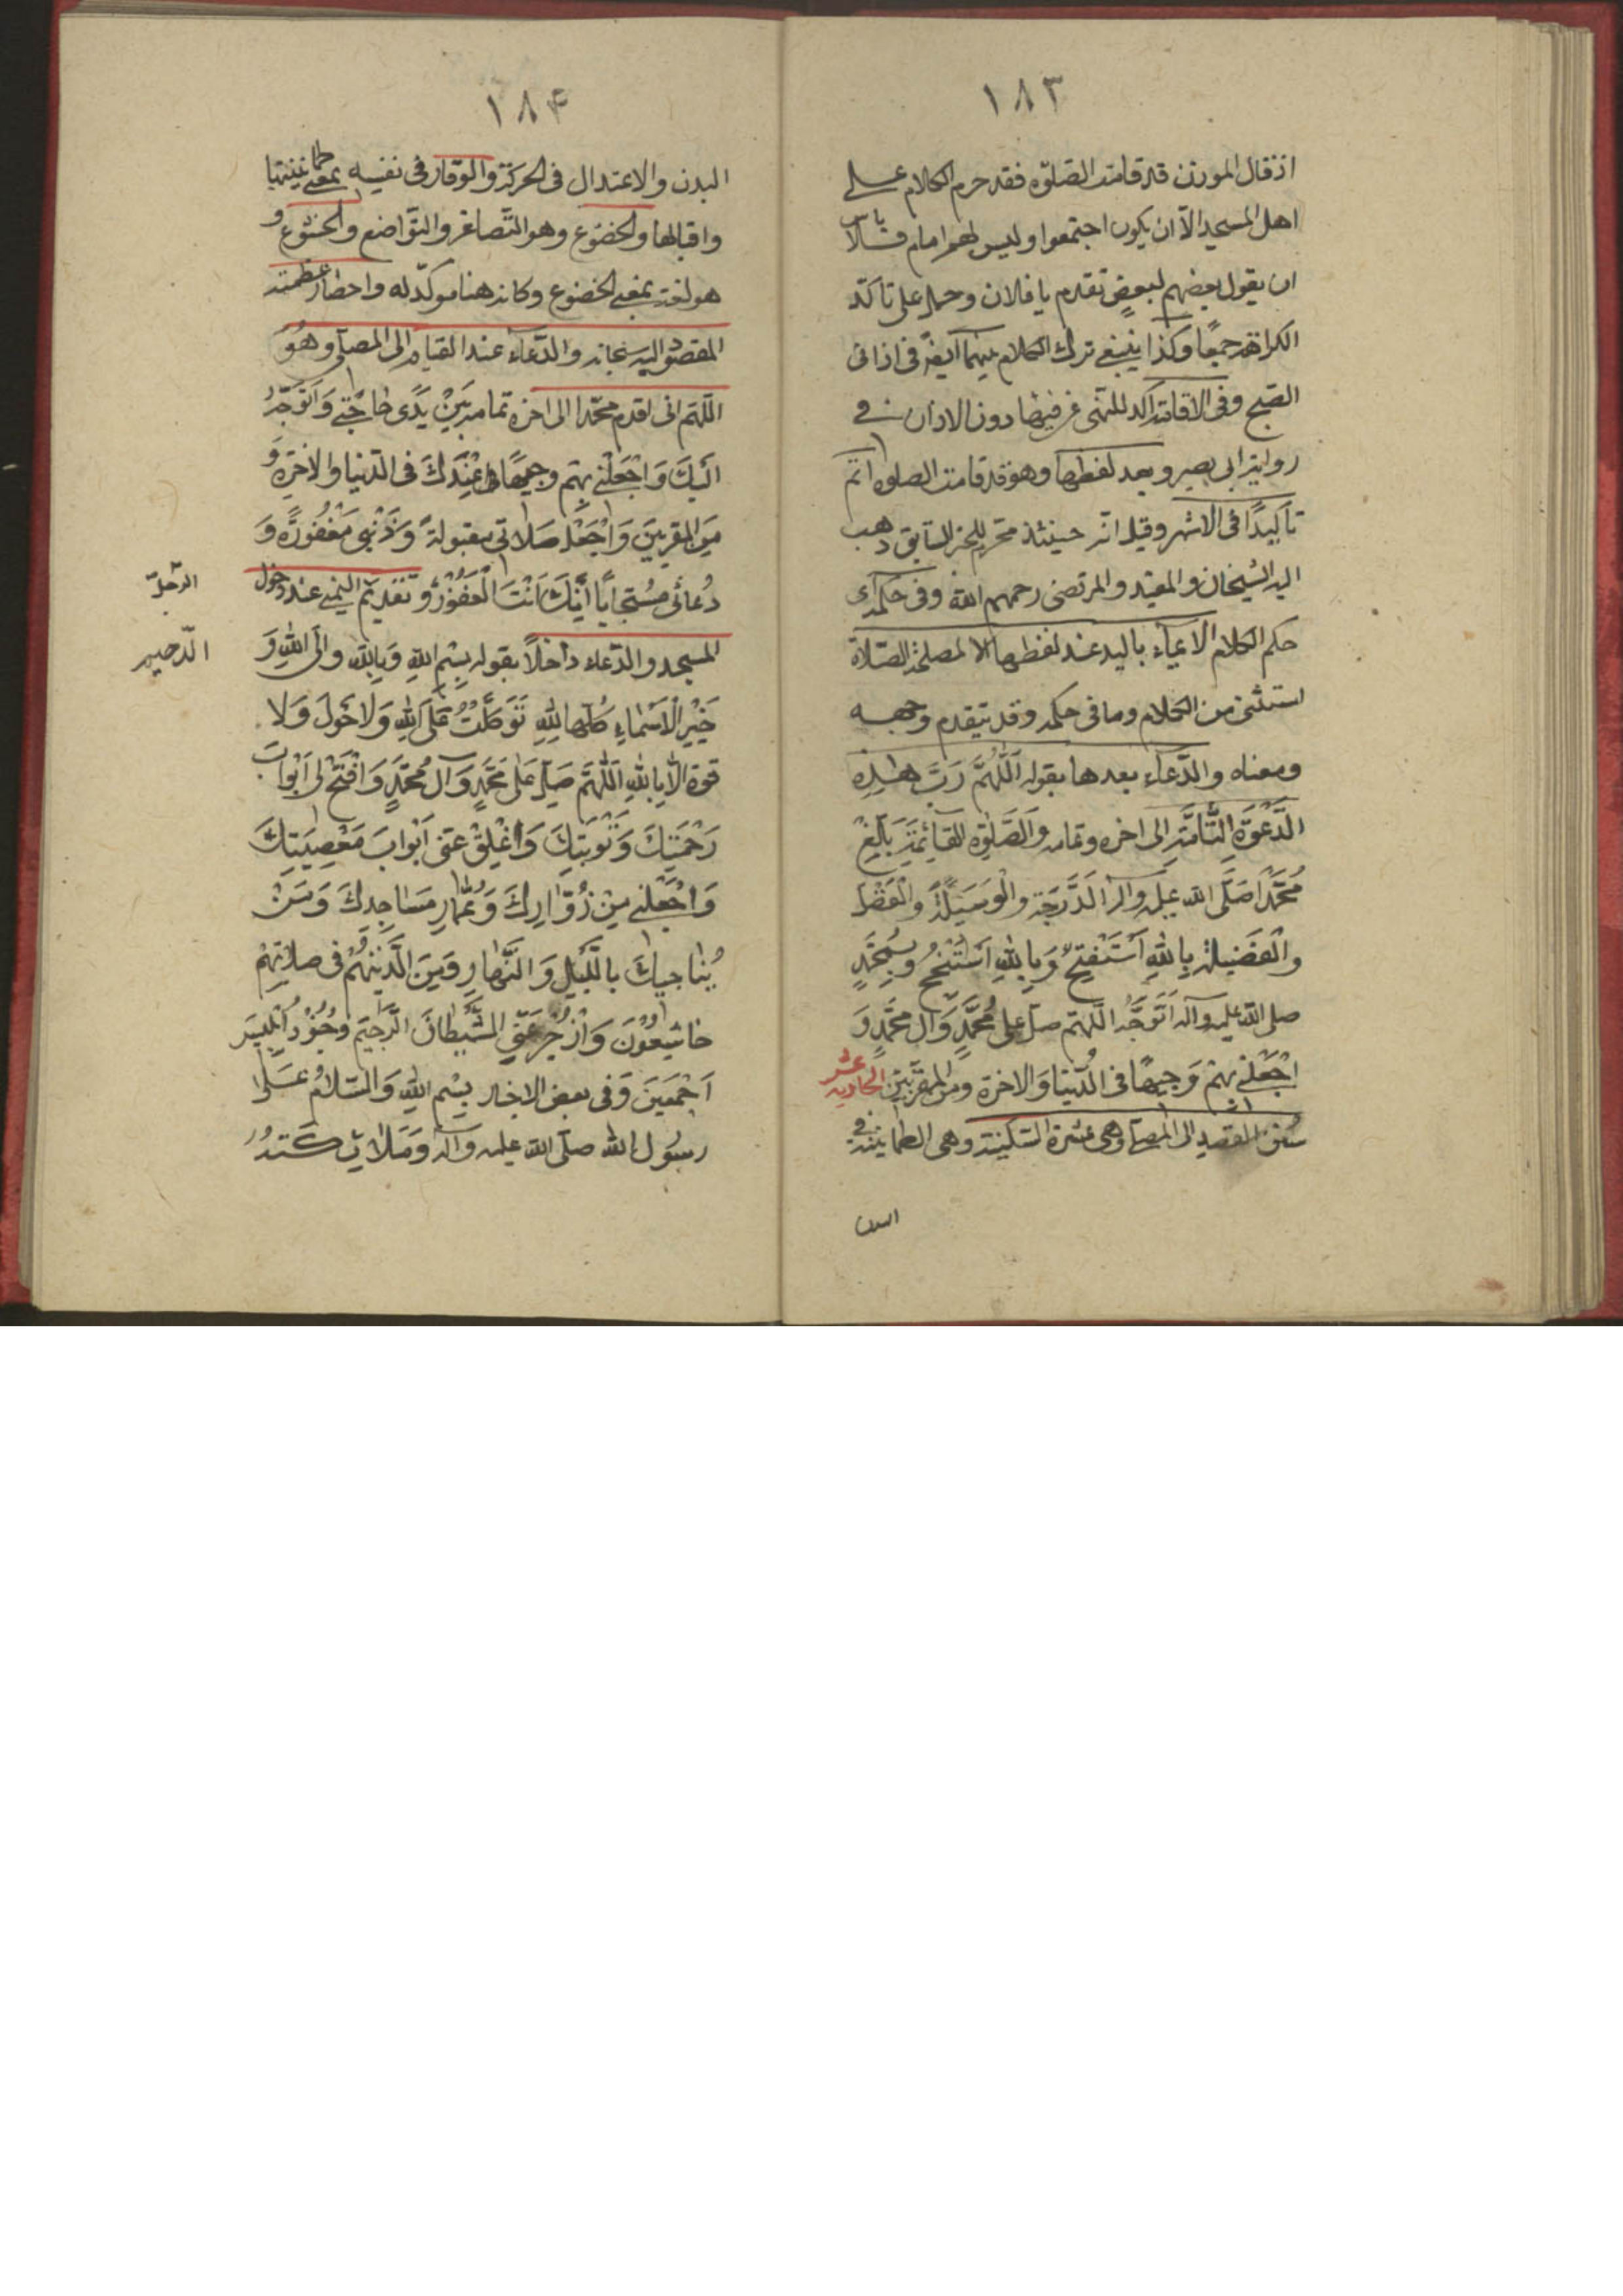 ١٨٣
اذ قال المؤذن قد قامت الصلوة فقد حرم الكلام على
اهل المسجد الا ان يكون اجتمعوا وليس لهم امام فلا باس
ان يقول بعضهم لبعض تقدم يا فلان وحمل على تاكد
الكراهة جمعًا وكذا ينبغى ترك الكلام بينهما ايضا فى اذانى
الصبح وفى الاقامة اكد للنهى عن فيها دون الاذان فى
رواية ابى بصير وبعد لفظها وهو قد قامت الصلوة اتم
تأكيدًا فى الاشهر وقيل انه حينئذ محرم للخبر السابق ذهب
اليه الشيخان والمفيد والمرتضى رحمهم الله وفى حكمه اى
حكم الكلام الايماء باليد عند لفظها الا لمصلحة الصلاة
استثنى من الكلام وما فى حكمه وقد تقدم وجهه
ومعناه والدَّعاء بعدها بقوله اَللّٰهُمَّ رَبَّ هٰذِهِ
الدَّعْوَةِ التَّامَّةِ الى اخره وتمامه وَالصَّلٰوةِ القَائِمَةِ بَلِّغْ
مُحَمَّدًا صَلَّى الله عليه واله الدَّرَجَة والْوَسيلَةَ والْفَضْل
والْفَضيلة بِاللهِ اَسْتَفْتِحُ وَبِاللهِ اَسْتَنْجِحُ وَبِمُحَمَّدٍ
صلى الله عليه واله اَتَوَجَّهُ اللّهم صلّ على مُحَمَّدٍ وَآلِ مُحَمَّدٍ وَ
اجْعَلْنى بِهِمْ وَجيهًا فى الدُّنيا وَالاخرة ومن المقرَّبين الحادية عشر
سُنن القصد الى المصلى وهى عشرة السكينة وهى الطمانينة فى
البدن
١٨۴
البدن والاعتدال فى الحركة والوقار فى نفسه بمعنى طمانينتها
واقبالها والخضوع وهو التَّصاغر والتَّواضع والخشوع و
هو لغة بمعنى الخضوع وكانه هنا موكّد له واحضار عظمة
المقصود اليه سبحانه والدّعاء عند القيام الى المصلّى وهُوَ
اللّهم انى اقدم محمّدا الى اخره تمامه بَيْنَ يَدَى حاجَتى وَاَتَوَجَّهُ
اِلَيْكَ وَاجْعَلْنى بِهِم وجيهًا عِنْدَكَ فى الدّنيا والاخرة وَ
مِنَ المقربينَ وَاجْعَلْ صَلاتى مقبولةً وَذَنْبى مَغْفُورًا وَ
دُعائى مُسْتَجابًا اِنَّكَ اَنْتَ الْغَفُورُ وَتقديم اليمنى عند دخول
الرّحيم
المسجد والدّعاء داخلاً بقوله بِسْمِ اللهِ وَبِاللهِ وَالَى اللهِ وَ
خَيْرُ الْاَسْماءِ كُلّها لِلّٰهِ تَوَكَّلْتُ عَلَى اللهِ وَلا حَوْلَ وَلا
قوة الا بِاللهِ اَللّٰهُمَّ صَلِّ عَلى مُحَمَّدٍ وَآلِ مُحَمَّدٍ وَافْتَحْ لى اَبْوابَ
رَحْمَتِكَ وَتَوْبَتِكَ وَاَغْلِقْ عَنّى اَبْوابَ مَعْصِيَتِكَ
وَاجْعَلْنى مِنْ زُوّارِكَ وَعُمّارِ مَساجِدِكَ وَمِمَّنْ
يُناجيكَ بالَّيْلِ وَالنَّهارِ وَمِنَ الَّذينَ هُمْ فى صلاتِهِمْ
خاشِعُونَ وَادْحَرْ عَنّى الشَّيْطانَ الرَّجيمَ وَجُنُودَ اِبْليسَ
اَجْمَعينَ وَفى بعض الاخبار بِسْمِ اللهِ وَالسَّلامُ عَلى
رسُولِ الله صلّى الله عليه واله وَمَلائِكَتِهِ